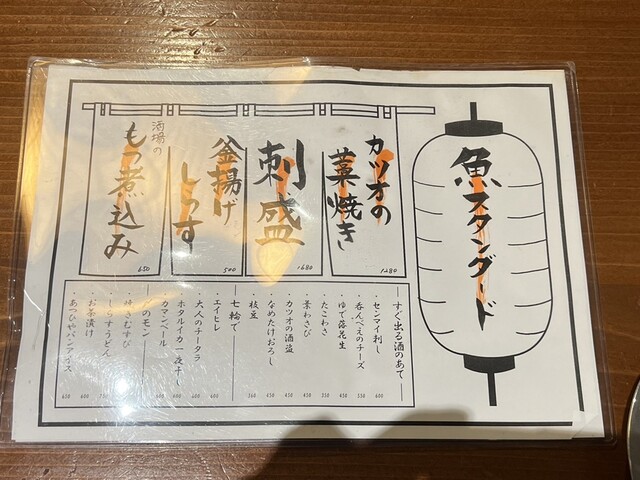 魚スタンダード
カツオの
藁焼き
1280
刺盛
1680
釜揚げ
しらす
500
酒場の
もつ煮込み
650
すぐ出る酒のあて
・センマイ刺し
・呑んべえのチーズ
・ゆで落花生
・たこわさ
・茎わさび
・カツオの酒盗
・なめたけおろし
・枝豆
七輪で
・エイヒレ
・大人のチータラ
・ホタルイカ一夜干し
・カマンベール
・焼きむすび
・しらすうどん
・お茶漬け
・あつひやパンアイス